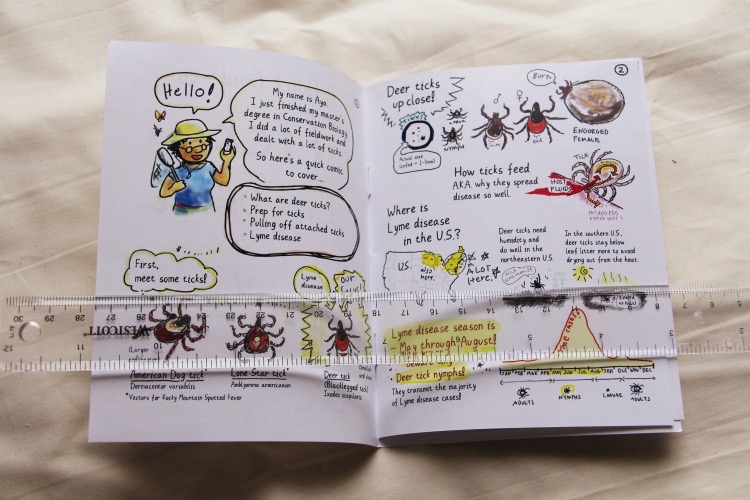 Hello!
My name is Aya.
I just finished my master's
degree in Conservation Biology.
I did a lot of fieldwork and
dealt with a lot of ticks
So here's a quick comic
to cover...
What are deer ticks?
Prep for ticks
Pulling off attached ticks
Lyme disease
First,
meet some ticks!
Lyme
disease
our
(Larger
American Dog tick*
Dermacentor variabilis
Lone Star tick
Amblyomma americanum
Deer tick
(Blacklegged tick)
Ixodes scapularis
*Vectors for Rocky Mountain Spotted Fever
2
Deer ticks
up close!
Actual size
LARVA
NYMPH
♂
♀
Burp.
ENGORGED
FEMALE
How ticks feed
AKA. why they spread
disease so well.
TICK
HOST
FLUIDS
Where is
Lyme disease
in the U.S.?
U.S.
also
here.
A LOT
HERE.
Deer ticks need
humidity and
do well in the
northeastern U.S.
In the southern U.S.,
deer ticks stay below
leaf litter more to avoid
drying out from the heat.
Lyme disease season is
May through August!
Deer tick nymphs!
They transmit the majority
of Lyme disease cases!
LYME CASES
JAN FEB MAR APR MAY JUN JUL AUG SEP OCT NOV DEC
ADULTS
NYMPHS
LARVAE
ADULTS
WESTCOTT